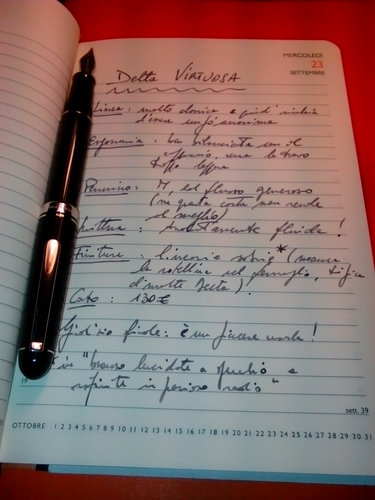 MERCOLEDÌ
23
SETTEMBRE
Delta VIRTUOSA
Linea: molto classica e quindi rischia
d'essere un po' anonima
Ergonomia: ben bilanciata con il
cappuccio, senza la trovo
troppo leggera
Pennino: M, dal flusso generoso
(ma questa carta non rende
al meglio)
Scrittura: assolutamente fluida!
Finiture: lineari e sobrie* (manca
la rotellina sul fermaglio, tipica
di molte Delta)!
Costo: 130€
Giudizio finale: è un piacere usarla!
lucidata a specchio e
rifinite in
19
sett. 39
OTTOBRE 1 2 3 4 5 6 7 8 9 10 11 12 13 14 15 16 17 18 19 20 21 22 23 24 25 26 27 28 29 30 31